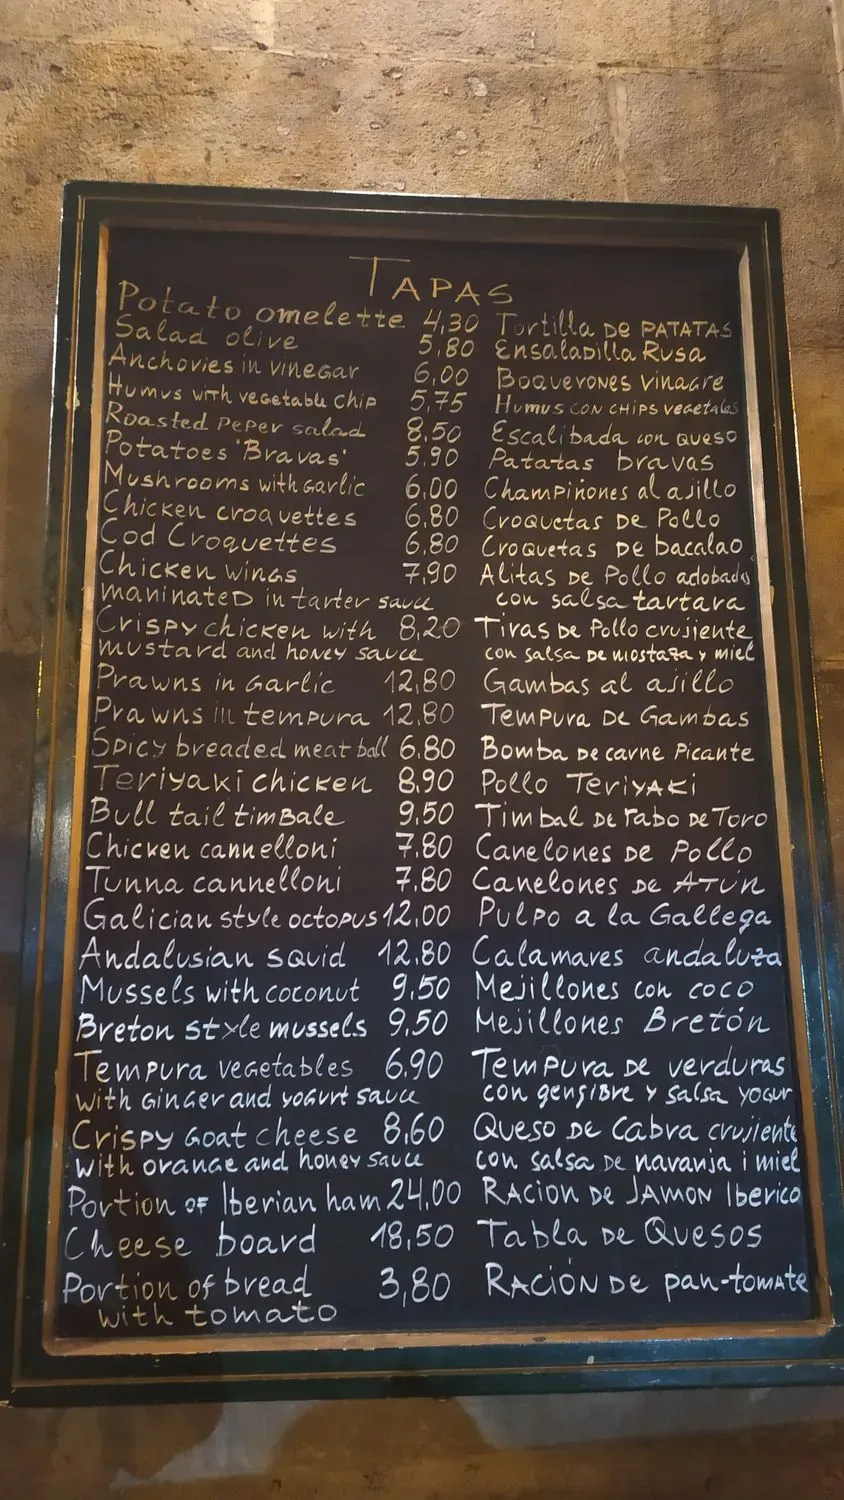 TAPAS
Potato omelette 4,30 Tortilla DE PATATAS
Salad olive 5,80 Ensaladilla Rusa
Anchovies in vinegar 6,00 Boquerones vinagre
Humus with vegetable chip 5,75 Humus con chips vegetales
Roasted peper salad 8,50 Escalibada con queso
Potatoes 'Bravas' 5,90 Patatas bravas
Mushrooms with garlic 6,00 Champiñones al ajillo
Chicken croquettes 6,80 Croquetas de Pollo
Cod Croquettes 6,80 Croquetas de bacalao
Chicken wings 7,90 Alitas de Pollo adobadas
maninated in tarter sauce con salsa tartara
Crispy chicken with 8,20 Tiras de Pollo crujiente
mustard and honey sauce con salsa de mostaza y miel
Prawns in garlic 12,80 Gambas al ajillo
Prawns in tempura 12,80 Tempura de Gambas
Spicy breaded meat ball 6,80 Bomba de carne Picante
Teriyaki chicken 8,90 Pollo Teriyaki
Bull tail timbale 9,50 Timbal de rabo de Toro
Chicken cannelloni 7,80 Canelones de Pollo
Tunna cannelloni 7,80 Canelones de ATÚN
Galician style octopus 12,00 Pulpo a la Gallega
Andalusian squid 12,80 Calamares andaluza
Mussels with coconut 9,50 Mejillones con coco
Breton style mussels 9,50 Mejillones Bretón
Tempura vegetables 6,90 Tempura de verduras
with ginger and yogurt sauce con gengibre y salsa yogur
Crispy Goat cheese 8,60 Queso de Cabra crujiente
with orange and honey sauce con salsa de naranja i miel
Portion of Iberian ham 24,00 RACION DE JAMON Iberico
Cheese board 18,50 Tabla de Quesos
Portion of bread 3,80 RACIÓN DE pan-tomate
with tomato